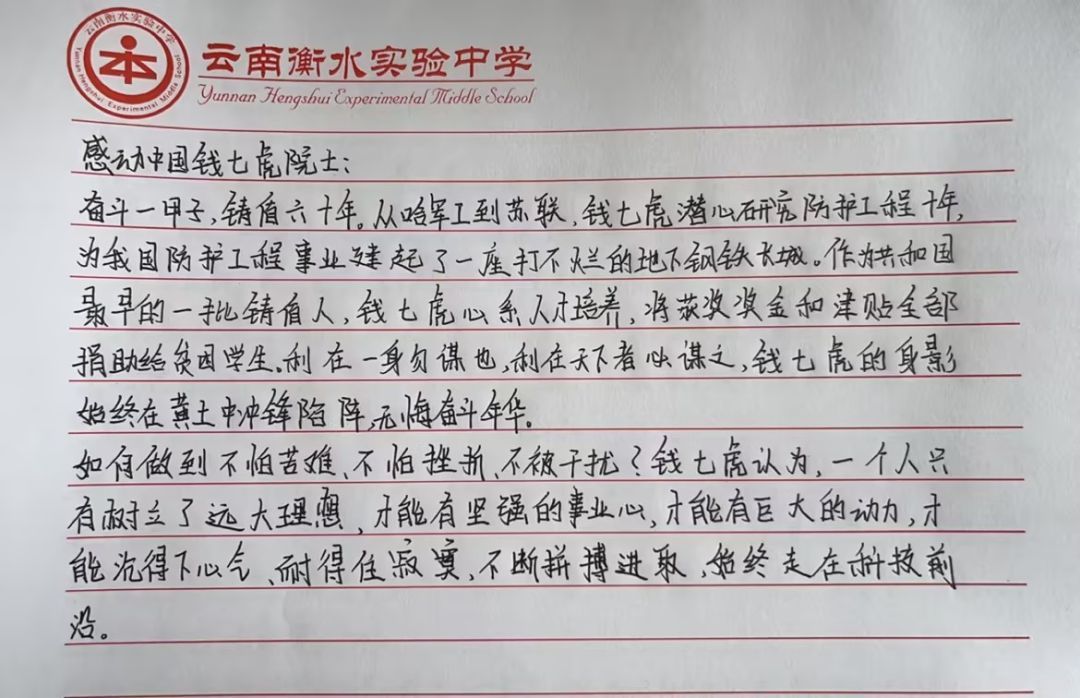 云南衡水实验中学
Yunnan Hengshui Experimental Middle School
云南衡水实验中学
Yunnan Hengshui Experimental Middle School
感动中国钱七虎院士:
奋斗一甲子,铸盾六十年。从哈军工到苏联,钱七虎潜心研究防护工程十年,
为我国防护工程事业建起了一座打不烂的地下钢铁长城。作为共和国
最早的一批铸盾人,钱七虎心系人才培养,将获奖奖金和津贴全部
捐助给贫困学生。利在一身勿谋也,利在天下者必谋之,钱七虎的身影
始终在黄土中冲锋陷阵,无悔奋斗年华。
如何做到不怕苦难、不怕挫折、不被干扰?钱七虎认为,一个人只
有树立了远大理想,才能有坚强的事业心,才能有巨大的动力,才
能沉得下心气、耐得住寂寞,不断拼搏进取,始终走在科技前
沿。